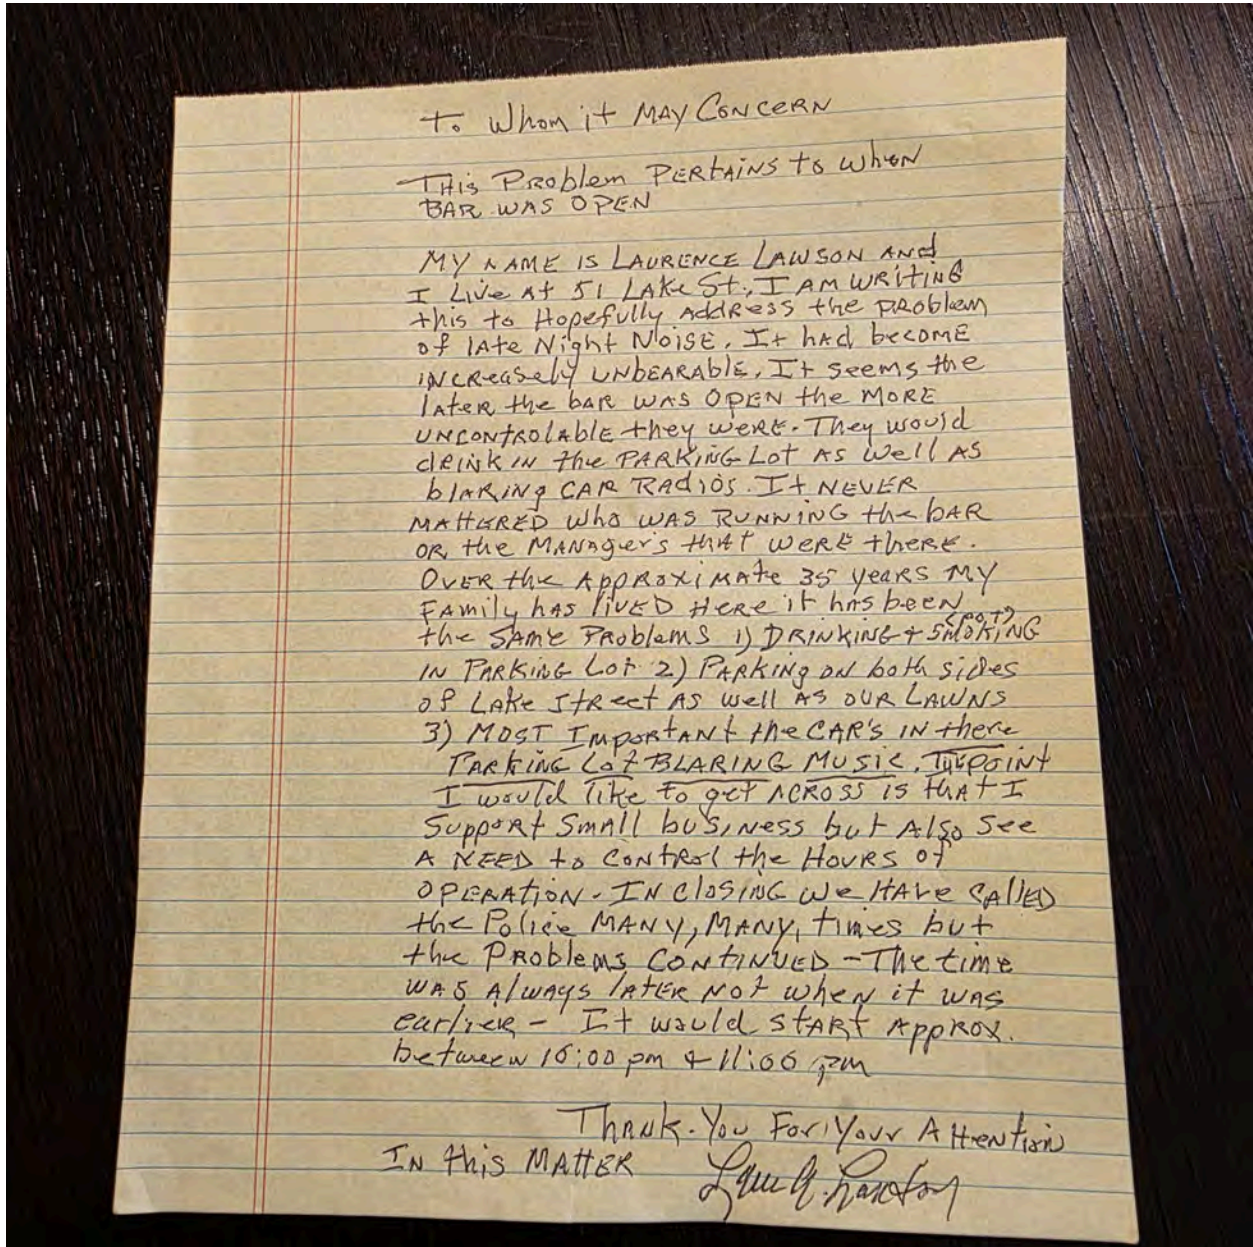 To Whom it MAY CONCERN
This Problem PERTAINS to when
BAR WAS OPEN
MY NAME IS LAURENCE LAWSON AND
I Live At 51 LAKE St., I AM WRITING
this to Hopefully Address the problem
of late Night NOISE. It had become
INCReasely UNBEARABLE. It seems the
later the bar WAS OPEN the MORE
UNCONTROLABLE they WERE. They would
drink in the PARKING Lot AS well AS
blaring CAR RADIOS. It NEVER
MATTERED who WAS RUNNING the bAR
OR the MANAger's that WERE there.
OVER the Approximate 35 years MY
FAMily has lIVED HERE it has been
the SAME Problems 1) DRINKING + SMOKING (POT)
IN PARKING Lot 2) PARKING ON both sides
of LAKE Street AS well AS OUR LAWNS
3) MOST IMPORTANT the CAR'S IN there
PARKING Lot BLARING MUSIC. THE POINT
I would like to get ACROSS is that I
Support Small business but Also See
A NEED to CONTROl the HOURS of
OPERATION. IN CLOSING we HAVE CAllED
the Police MANY, MANY, times but
the Problems CONTINUED - The time
WAS AlWAYS lATER NOT when it WAS
earlier - It would START Approx.
between 10:00 pm + 11:00 pm
Thank-You For Your Attention
IN this MATTER